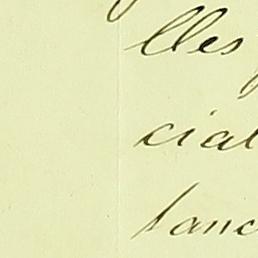 lles
cial
tanc